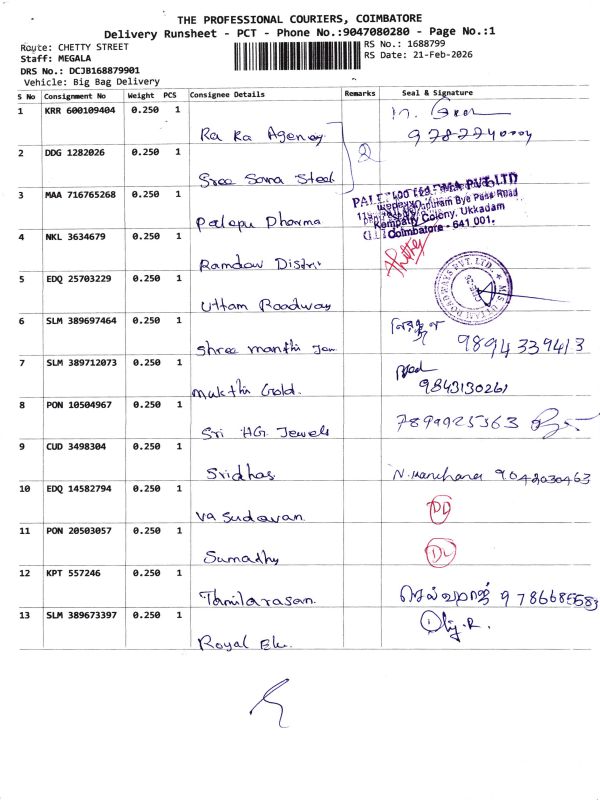 THE PROFESSIONAL COURIERS, COIMBATORE
Delivery Runsheet - PCT - Phone No.:9047080280 - Page No.:1
Route: CHETTY STREET
RS No.: 1688799
Staff: MEGALA
RS Date: 21-Feb-2026
DRS No.: DCJB168879901
Vehicle: Big Bag Delivery
S No Consignment No Weight PCS Consignee Details Remarks Seal & Signature
1 KRR 600109404 0.250 1
Ra Ka Agency
2
2 DDG 1282026 0.250 1
Sree Sona Steel
3 MAA 716765268 0.250 1
Palepu Pharma
PHARMA PVT.LTD
Bye Pass Road
Kempatty Colony, Ukkadam
Coimbatore - 641 001.
4 NKL 3634679 0.250 1
Ramdow Distri
5 EDQ 25703229 0.250 1
Uttam Roadway
M/S. UTTAM ROADWAYS PVT. LTD.
6 SLM 389697464 0.250 1
Shree manthi Jew
9894339413
7 SLM 389712073 0.250 1
mukthi Gold.
9843130261
8 PON 10504967 0.250 1
Sri HG Jewels
7899925363
9 CUD 3498304 0.250 1
Sridhar
N. 9042030463
10 EDQ 14582794 0.250 1
vasudevan
DD
11 PON 20503057 0.250 1
Sumadhy
DL
12 KPT 557246 0.250 1
Tamilarasan
செல்வராஜ் 9786685583
13 SLM 389673397 0.250 1
Royal Ele.